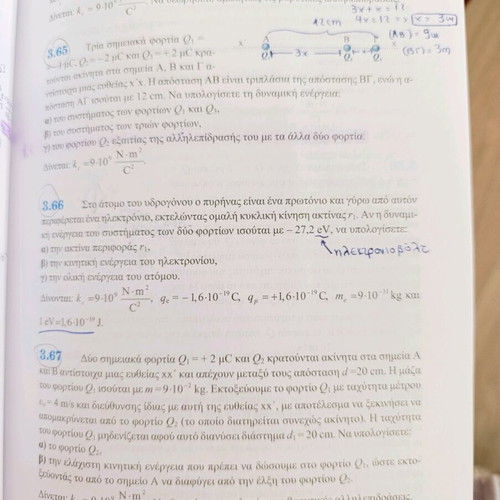 Δίνεται: k
C²
3x + x = 12
4x = 12 => x = 3m
12cm
(AB) = 9m
(ΒΓ) = 3m
x΄
A
3x
B
x
Q₁
Q₂
3.65 Τρία σημειακά φορτία Q₁ =
μC, Q₂ = – 2 μC και Q₃ = + 2 μC κρα-
τούνται ακίνητα στα σημεία Α, Β και Γ α-
ντίστοιχα μιας ευθείας x΄x. Η απόσταση ΑΒ είναι τριπλάσια της απόστασης ΒΓ, ενώ η α-
πόσταση ΑΓ ισούται με 12 cm. Να υπολογίσετε τη δυναμική ενέργεια:
α) του συστήματος των φορτίων Q₁ και Q₃,
β) του συστήματος των τριών φορτίων,
γ) του φορτίου Q₂ εξαιτίας της αλληλεπίδρασής του με τα άλλα δύο φορτία.
Δίνεται: k_c = 9·10⁹ N·m²/C².
3.66 Στο άτομο του υδρογόνου ο πυρήνας είναι ένα πρωτόνιο και γύρω από αυτόν
περιφέρεται ένα ηλεκτρόνιο, εκτελώντας ομαλή κυκλική κίνηση ακτίνας r₁. Αν η δυναμι-
κή ενέργεια του συστήματος των δύο φορτίων ισούται με – 27,2 eV, να υπολογίσετε:
ηλεκτρονιοβόλτ
α) την ακτίνα περιφοράς r₁,
β) την κινητική ενέργεια του ηλεκτρονίου,
γ) την ολική ενέργεια του ατόμου.
Δίνονται: k_c = 9·10⁹ N·m²/C², q_e = – 1,6·10⁻¹⁹ C, q_p = +1,6·10⁻¹⁹ C, m_e = 9·10⁻³¹ kg και
1 eV = 1,6·10⁻¹⁹ J.
3.67 Δύο σημειακά φορτία Q₁ = + 2 μC και Q₂ κρατούνται ακίνητα στα σημεία Α
και Β αντίστοιχα μιας ευθείας xx΄ και απέχουν μεταξύ τους απόσταση d = 20 cm. Η μάζα
του φορτίου Q₁ ισούται με m = 9·10⁻² kg. Εκτοξεύουμε το φορτίο Q₁ με ταχύτητα μέτρου
υ₀ = 4 m/s και διεύθυνσης ίδιας με αυτή της ευθείας xx΄, με αποτέλεσμα να ξεκινήσει να
απομακρύνεται από το φορτίο Q₂ (το οποίο διατηρείται συνεχώς ακίνητο). Η ταχύτητα
του φορτίου Q₁ μηδενίζεται αφού αυτό διανύσει διάστημα d₁ = 20 cm. Να υπολογίσετε:
α) το φορτίο Q₂,
β) την ελάχιστη κινητική ενέργεια που πρέπει να δώσουμε στο φορτίο Q₁, ώστε εκτο-
ξεύοντάς το από το σημείο Α να διαφύγει από την έλξη του φορτίου Q₂.
N·m²